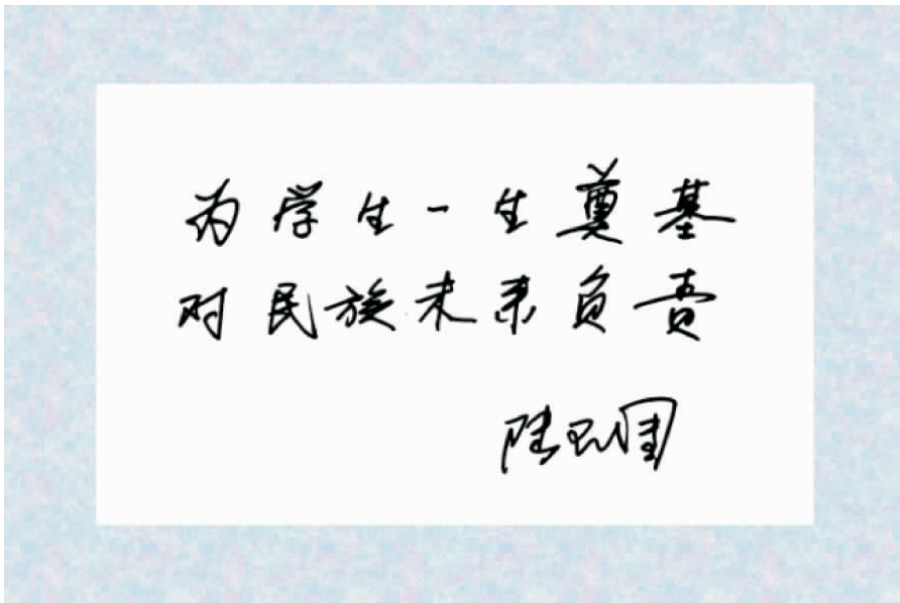 为学生一生奠基
对民族未来负责
陆卫国